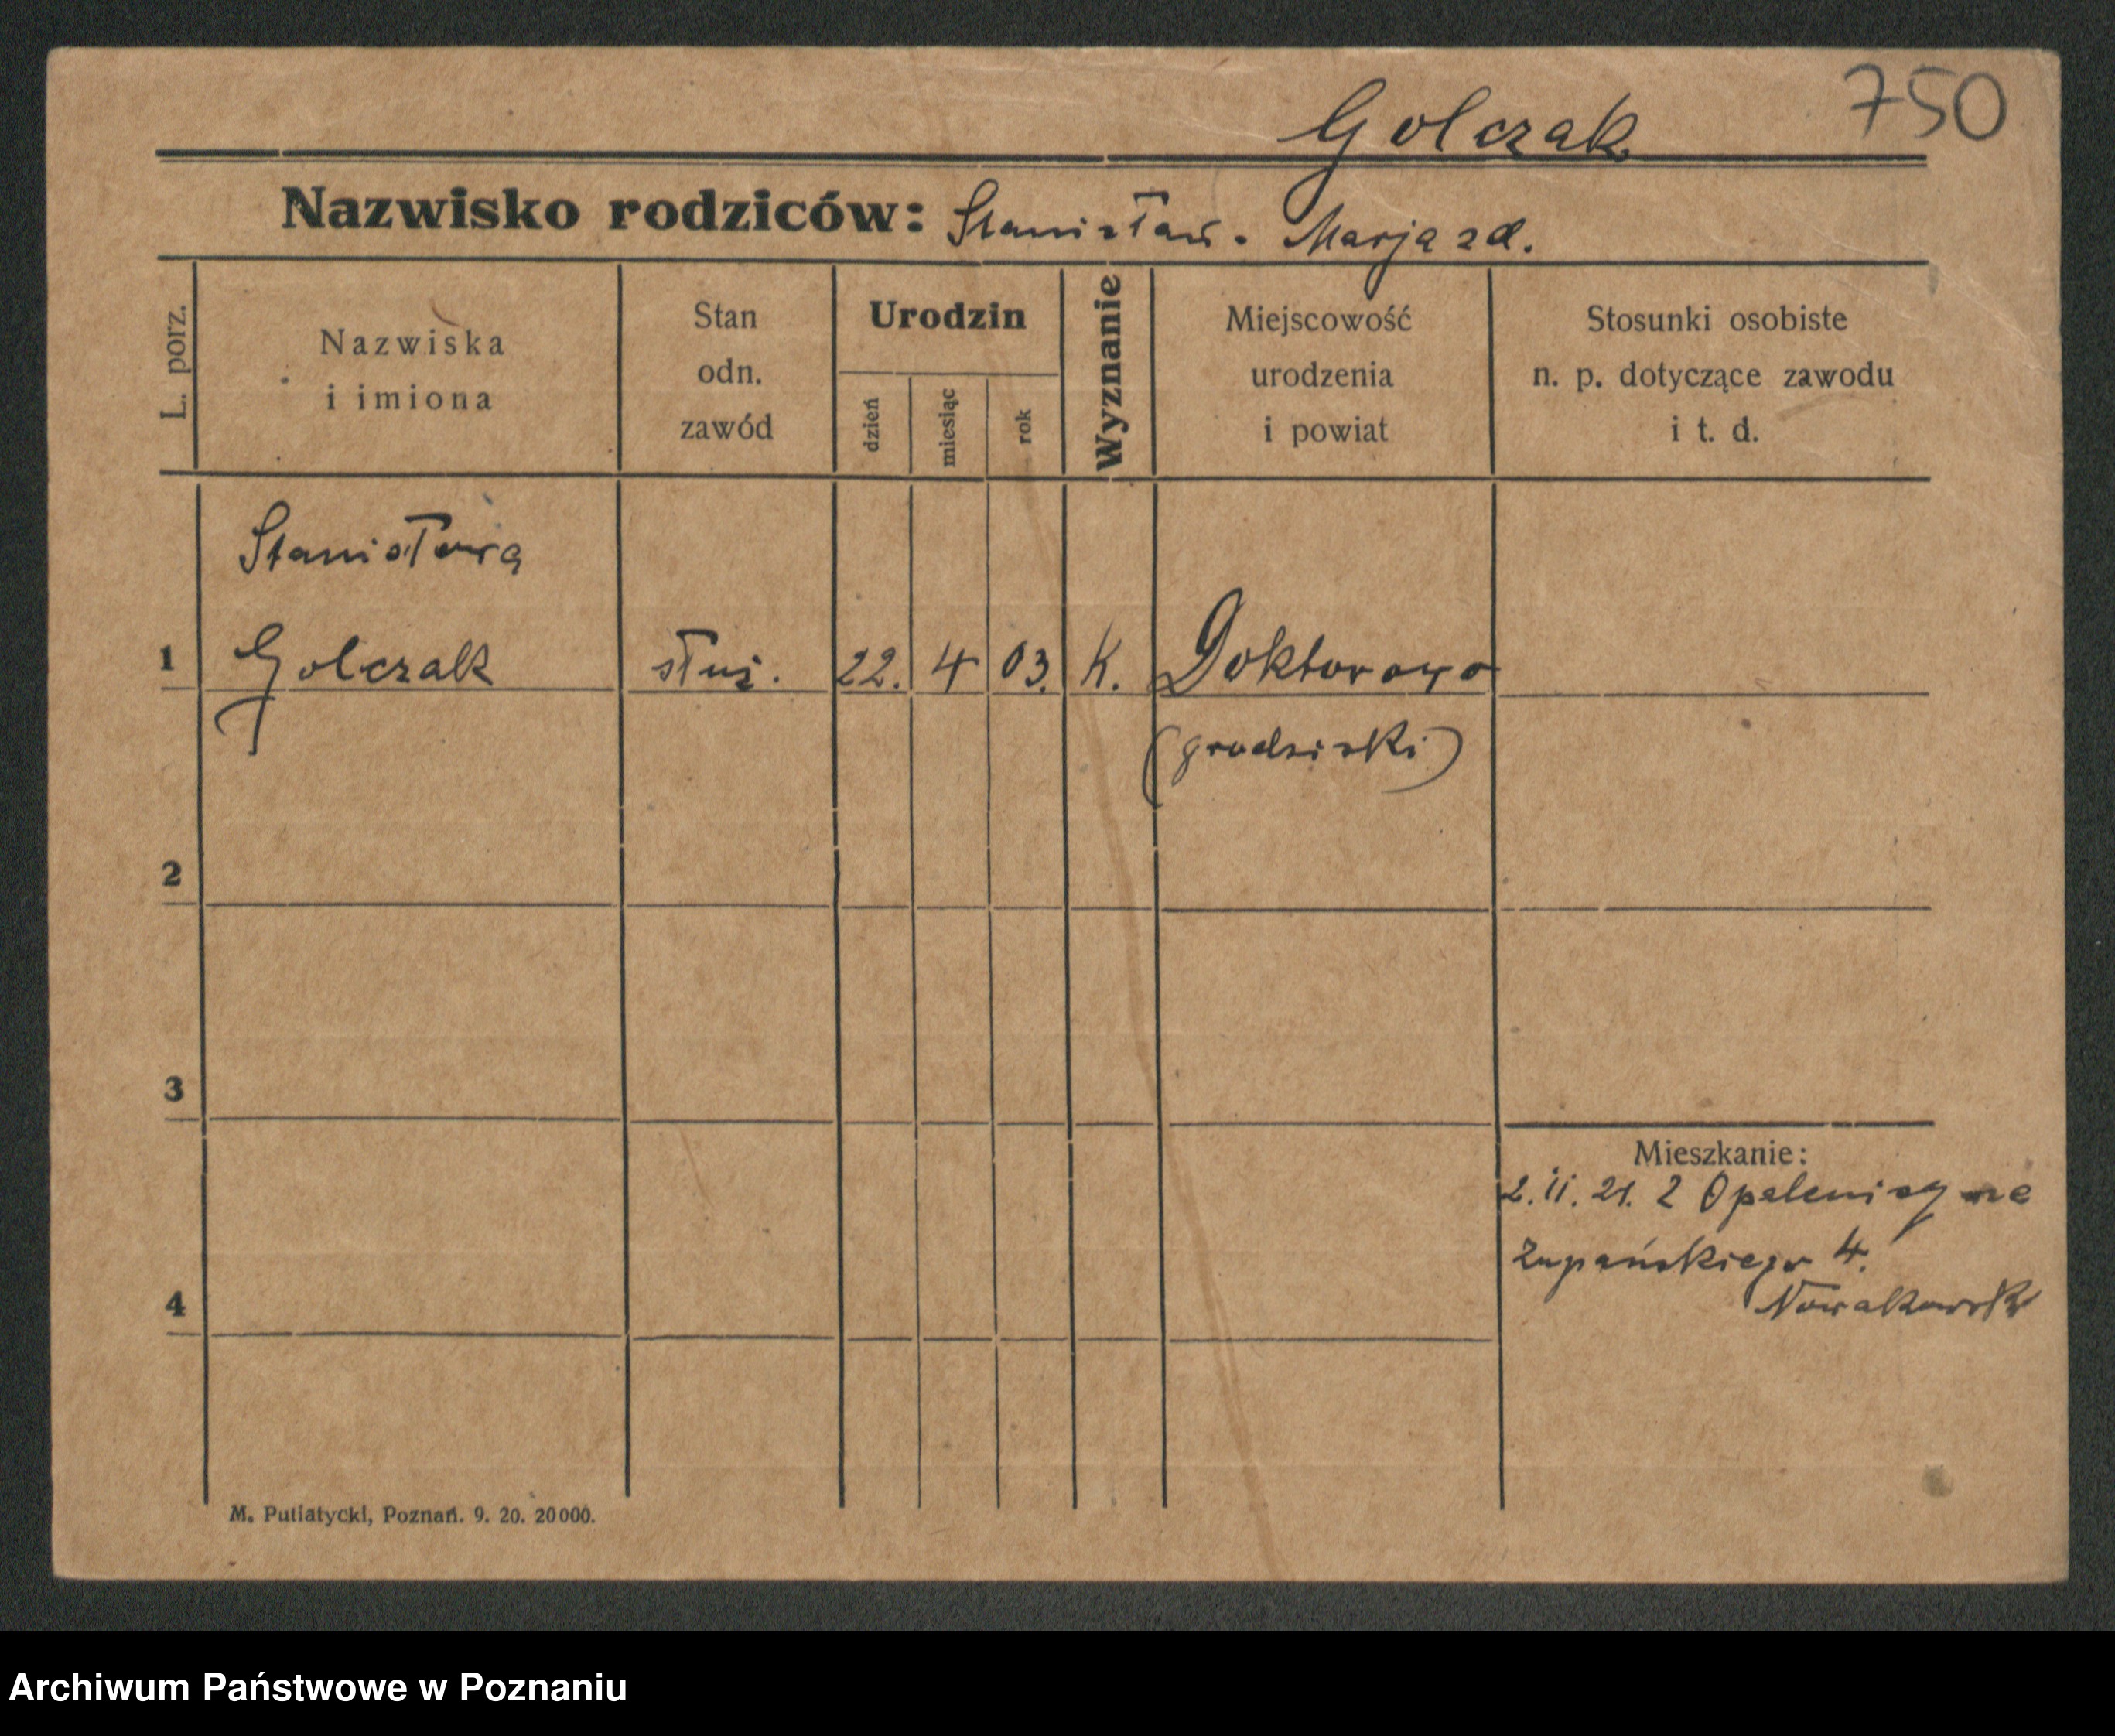 750
Golczak
Nazwisko rodziców: Stanisław. Marja zd.
L. porz.
Nazwiska
i imiona
Stan
odn.
zawód
Urodzin
dzień
miesiąc
rok
Wyznanie
Miejscowość
urodzenia
i powiat
Stosunki osobiste
n. p. dotyczące zawodu
i t. d.
Stanisława
1 Golczak służ. 22. 4 03. K. Doktorowo
(grodziski)
2
3
Mieszkanie:
2. 11. 21. z Opalenicy na
Żupańskiego 4.
4
Nowakowski
M. Putiatycki, Poznań. 9. 20. 20000.
Archiwum Państwowe w Poznaniu